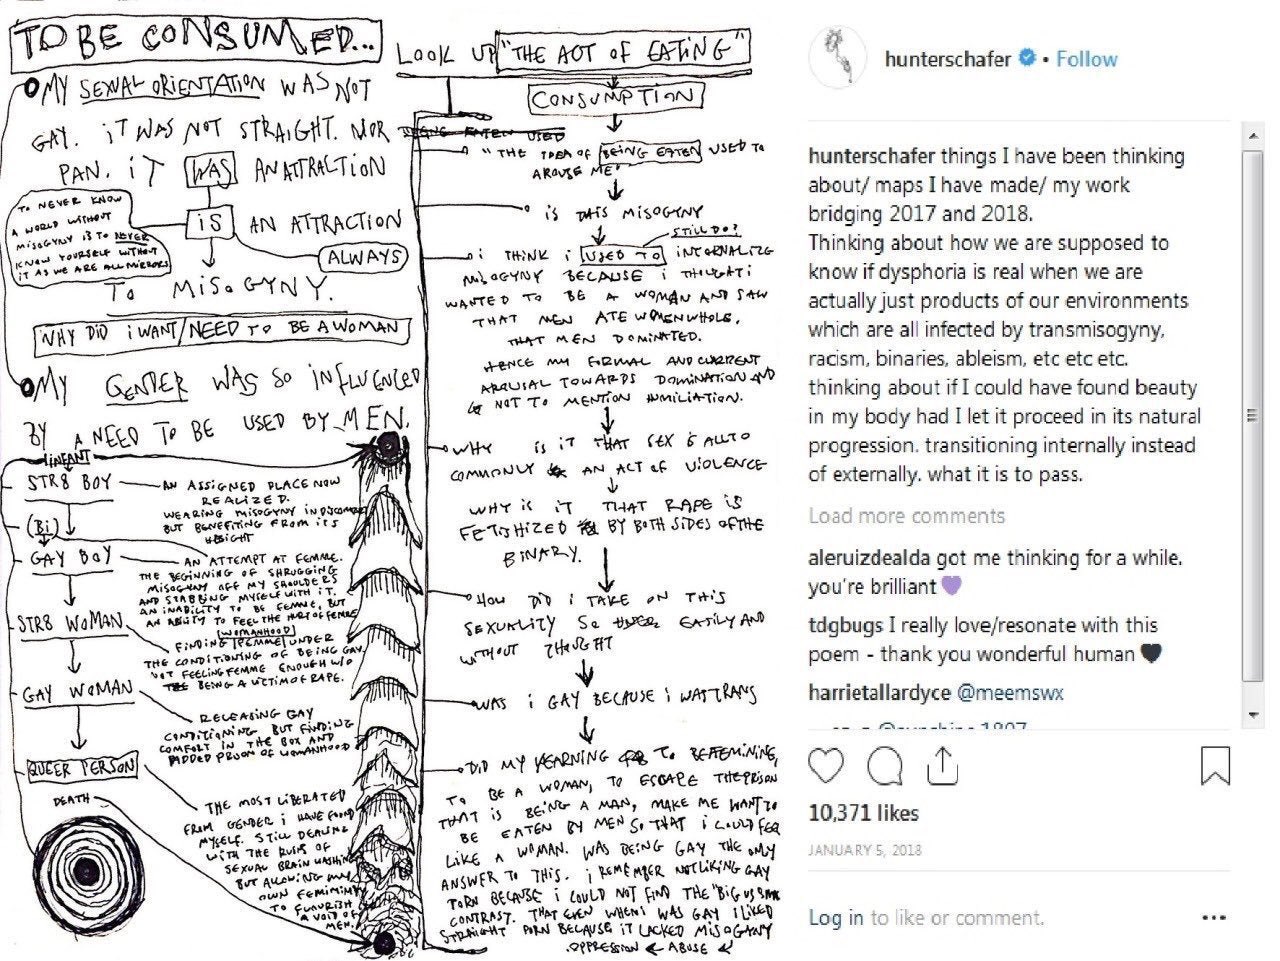 TO BE CONSUMED...
MY SEXUAL ORIENTATION WAS NOT
GAY. IT WAS NOT STRAIGHT. NOR
PAN. IT WAS AN ATTRACTION
IS AN ATTRACTION
ALWAYS
TO MISOGYNY.
TO NEVER KNOW
A WORLD WITHOUT
MISOGYNY IS TO NEVER
KNOW YOURSELF WITHOUT
IT AS WE ARE ALL MIRRORS
WHY DID I WANT/NEED TO BE A WOMAN
MY GENDER WAS SO INFLUENCED
BY A NEED TO BE USED BY MEN.
INFANT
STR8 BOY
AN ASSIGNED PLACE NOW
REALIZED.
WEARING MISOGYNY IN DISCOMFORT
BUT BENEFITING FROM ITS
WEIGHT
(Bi)
GAY BOY
AN ATTEMPT AT FEMME.
THE BEGINNING OF SHRUGGING
MISOGYNY OFF MY SHOULDERS
AND STABBING MYSELF WITH IT.
AN INABILITY TO BE FEMME, BUT
AN ABILITY TO FEEL THE HURT OF FEMME
STR8 WOMAN
WOMANHOOD
FINDING FEMME UNDER
THE CONDITIONING OF BEING GAY
NOT FEELING FEMME ENOUGH W/O
BEING A VICTIM OF RAPE.
GAY WOMAN
RELEASING GAY
CONDITIONING BUT FINDING
COMFORT IN THE BOX AND
ADDED PROOF OF WOMANHOOD
QUEER PERSON
THE MOST LIBERATED
FROM GENDER I HAVE FOUND
MYSELF. STILL DEALING
WITH THE RUINS OF
SEXUAL BRAIN WASHING
BUT ALLOWING MY
OWN FEMININITY
TO FLOURISH
A VOID OF
MEN.
DEATH
LOOK UP "THE ACT OF EATING"
CONSUMPTION
BEING EATEN USED
"THE IDEA OF BEING EATEN USED TO
AROUSE ME"
IS THIS MISOGYNY
STILL DO?
I THINK I USED TO INTERNALIZE
MISOGYNY BECAUSE I THOUGHT I
WANTED TO BE A WOMAN AND SAW
THAT MEN ATE WOMEN WHOLE.
THAT MEN DOMINATED.
HENCE MY FORMAL AND CURRENT
AROUSAL TOWARDS DOMINATION AND
NOT TO MENTION HUMILIATION.
WHY IS IT THAT SEX IS ALL TO
COMMONLY AN ACT OF VIOLENCE
WHY IS IT THAT RAPE IS
FETISHIZED BY BOTH SIDES OF THE
BINARY.
HOW DID I TAKE ON THIS
SEXUALITY SO EASILY AND
WITHOUT THOUGHT
WAS I GAY BECAUSE I WAS TRANS
DID MY YEARNING TO BE FEMININE,
TO BE A WOMAN, TO ESCAPE THE PRISON
THAT IS BEING A MAN, MAKE ME WANT TO
BE EATEN BY MEN SO THAT I COULD FEEL
LIKE A WOMAN. WAS BEING GAY THE ONLY
ANSWER TO THIS. I REMEMBER NOT LIKING GAY
PORN BECAUSE I COULD NOT FIND THE "BIG VS SMALL
CONTRAST. THAT EVEN WHEN I WAS GAY I LIKED
STRAIGHT PORN BECAUSE IT LACKED MISOGYNY
OPPRESSION ← ABUSE
hunterschafer • Follow
hunterschafer things I have been thinking
about/ maps I have made/ my work
bridging 2017 and 2018.
Thinking about how we are supposed to
know if dysphoria is real when we are
actually just products of our environments
which are all infected by transmisogyny,
racism, binaries, ableism, etc etc etc.
thinking about if I could have found beauty
in my body had I let it proceed in its natural
progression. transitioning internally instead
of externally. what it is to pass.
Load more comments
aleruizdealda got me thinking for a while.
you're brilliant💜
tdgbugs I really love/resonate with this
poem - thank you wonderful human🖤
harrietallardyce @meemswx
10,371 likes
JANUARY 5, 2018
Log in to like or comment.